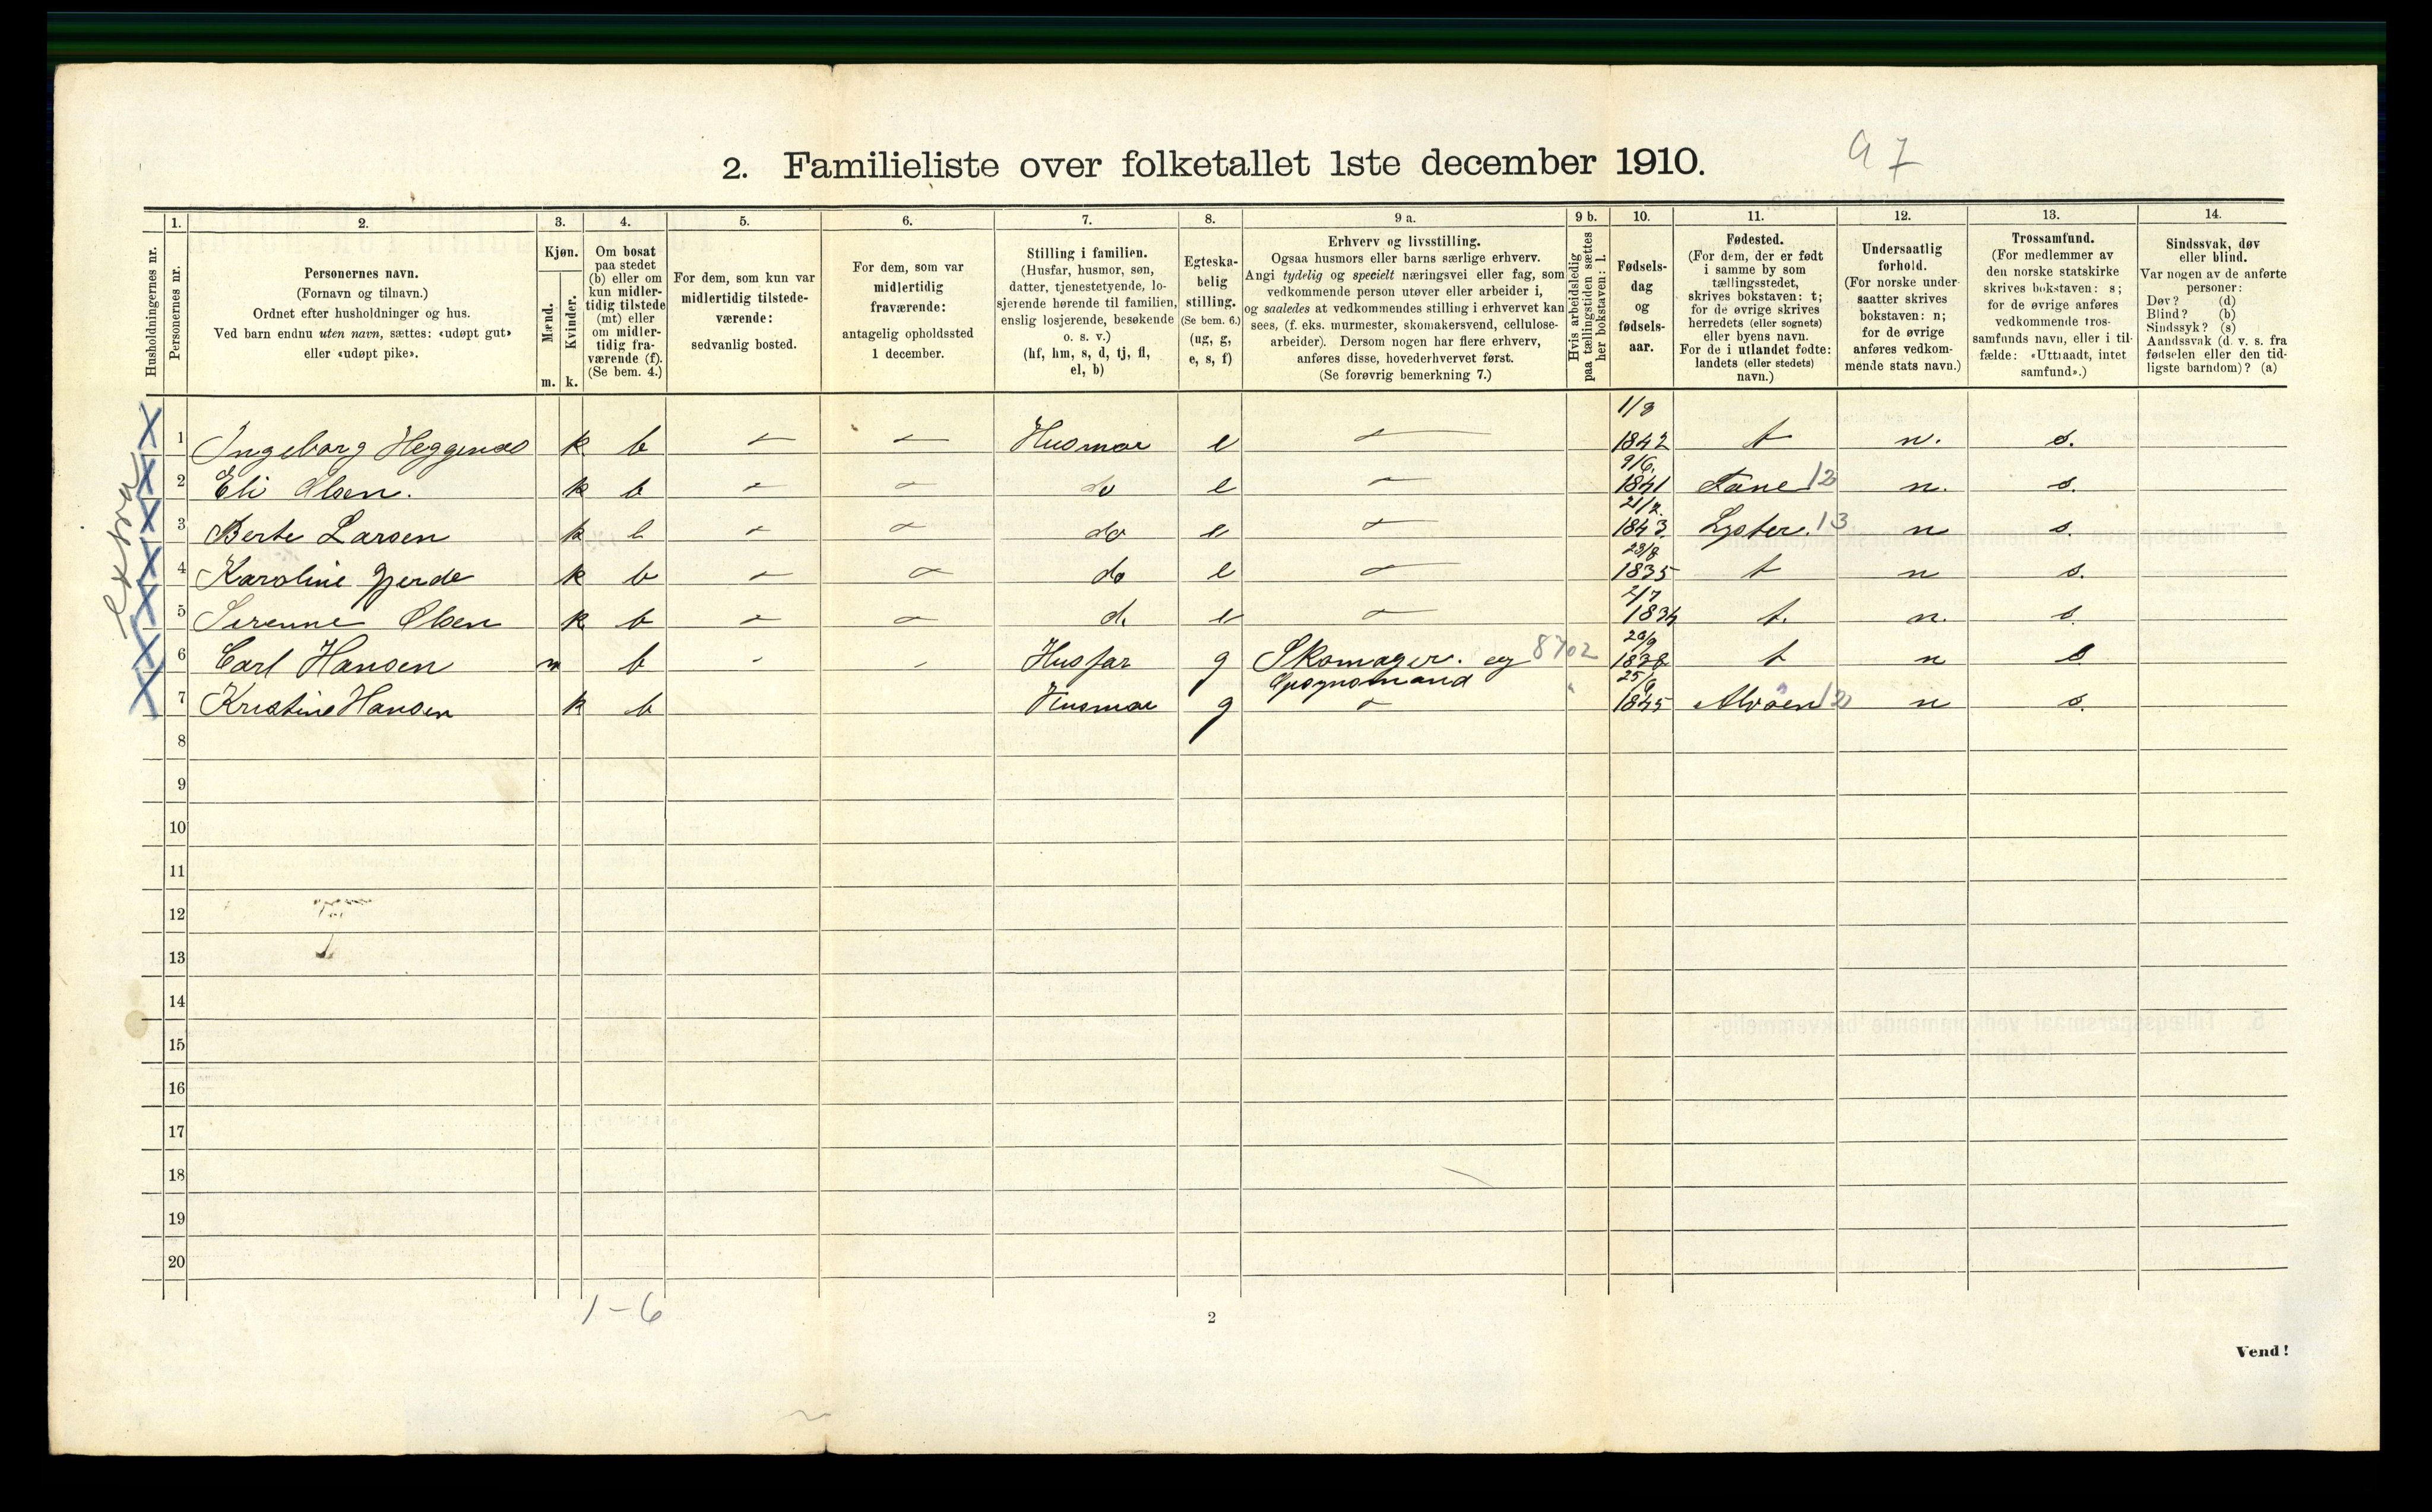 97
2. Familieliste over folketallet 1ste december 1910.
Husholdningernes nr.
1.
Personernes nr.
2.
Personernes navn.
(Fornavn og tilnavn.)
Ordnet efter husholdninger og hus.
Ved barn endnu uten navn, sættes: «udøpt gut»
eller «udøpt pike».
3.
Kjøn.
Mænd.
Kvinder.
m. k.
4.
Om bosat
paa stedet
(b) eller om
kun midler-
tidig tilstede
(mt) eller
om midler-
tidig fra-
værende (f).
(Se bem. 4.)
5.
For dem, som kun var
midlertidig tilstede-
værende:
sedvanlig bosted.
6.
For dem, som var
midlertidig
fraværende:
antagelig opholdssted
1 december.
7.
Stilling i familien.
(Husfar, husmor, søn,
datter, tjenestetyende, lo-
sjerende hørende til familien,
enslig losjerende, besøkende
o. s. v.)
(hf, hm, s, d, tj, fl,
el, b)
8.
Egteska-
belig
stilling.
(Se bem. 6.)
(ug, g,
e, s, f)
9 a.
Erhverv og livsstilling.
Ogsaa husmors eller barns særlige erhverv.
Angi tydelig og specielt næringsvei eller fag, som
vedkommende person utøver eller arbeider i,
og saaledes at vedkommendes stilling i erhvervet kan
sees, (f. eks. murmester, skomakersvend, cellulose-
arbeider). Dersom nogen har flere erhverv,
anføres disse, hovederhvervet først.
(Se forøvrig bemerkning 7.)
9 b.
Hvis arbeidsledig
paa tællingstiden sættes
her bokstaven: l.
10.
Fødsels-
dag
og
fødsels-
aar.
11.
Fødested.
(For dem, der er født
i samme by som
tællingsstedet,
skrives bokstaven: t;
for de øvrige skrives
herredets (eller sognets)
eller byens navn.
For de i utlandet fødte:
landets (eller stedets)
navn.)
12.
Undersaatlig
forhold.
(For norske under-
saatter skrives
bokstaven: n;
for de øvrige
anføres vedkom-
mende stats navn.)
13.
Trossamfund.
(For medlemmer av
den norske statskirke
skrives bokstaven: s;
for de øvrige anføres
vedkommende tros-
samfunds navn, eller i til-
fælde: «Uttraadt, intet
samfund».)
14.
Sindssvak, døv
eller blind.
Var nogen av de anførte
personer:
Døv? (d)
Blind? (b)
Sindssyk? (s)
Aandssvak (d. v. s. fra
fødselen eller den tid-
ligste barndom)? (a)
extra
1 Ingeborg Heggenæs k b - - Husmor e - 1/8 1842 t n. s.
2 Eli Olsen. k b - - do e - 9/6. 1841 Fane 12 n. s.
3 Berte Larsen k b - - do e - 21/2. 1843. Lyster. 13 n s.
4 Karoline Gjerde k b - - do e - 23/8 1835 t n s.
5 Serenne Olsen k b - - d. e - 2/7 1834 t. n. s.
6 Carl Hansen m b - - Husfar g Skomager. og 8702 29/9 1838 t n s
7 Kristine Hansen k b Husmor g - 1845 Alvøen 12 n s.
8
9
10
11
12
13
14
15
16
17
18
19
20
1-6
2
Vend!